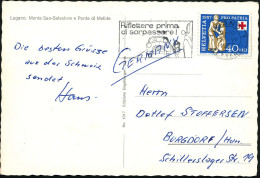 Lugano. Monte San Salvatore e Ponte di Melide
Riflettere prima
di sorpassare!
1957 PRO PATRIA
HELVETIA 40+10
Die besten Grüsse
aus der Schweiz
sendet
Hans
GERMANY
Herrn
Detlef STOFFERSEN
BURGDORF/Han.
Schillerslager Str. 19